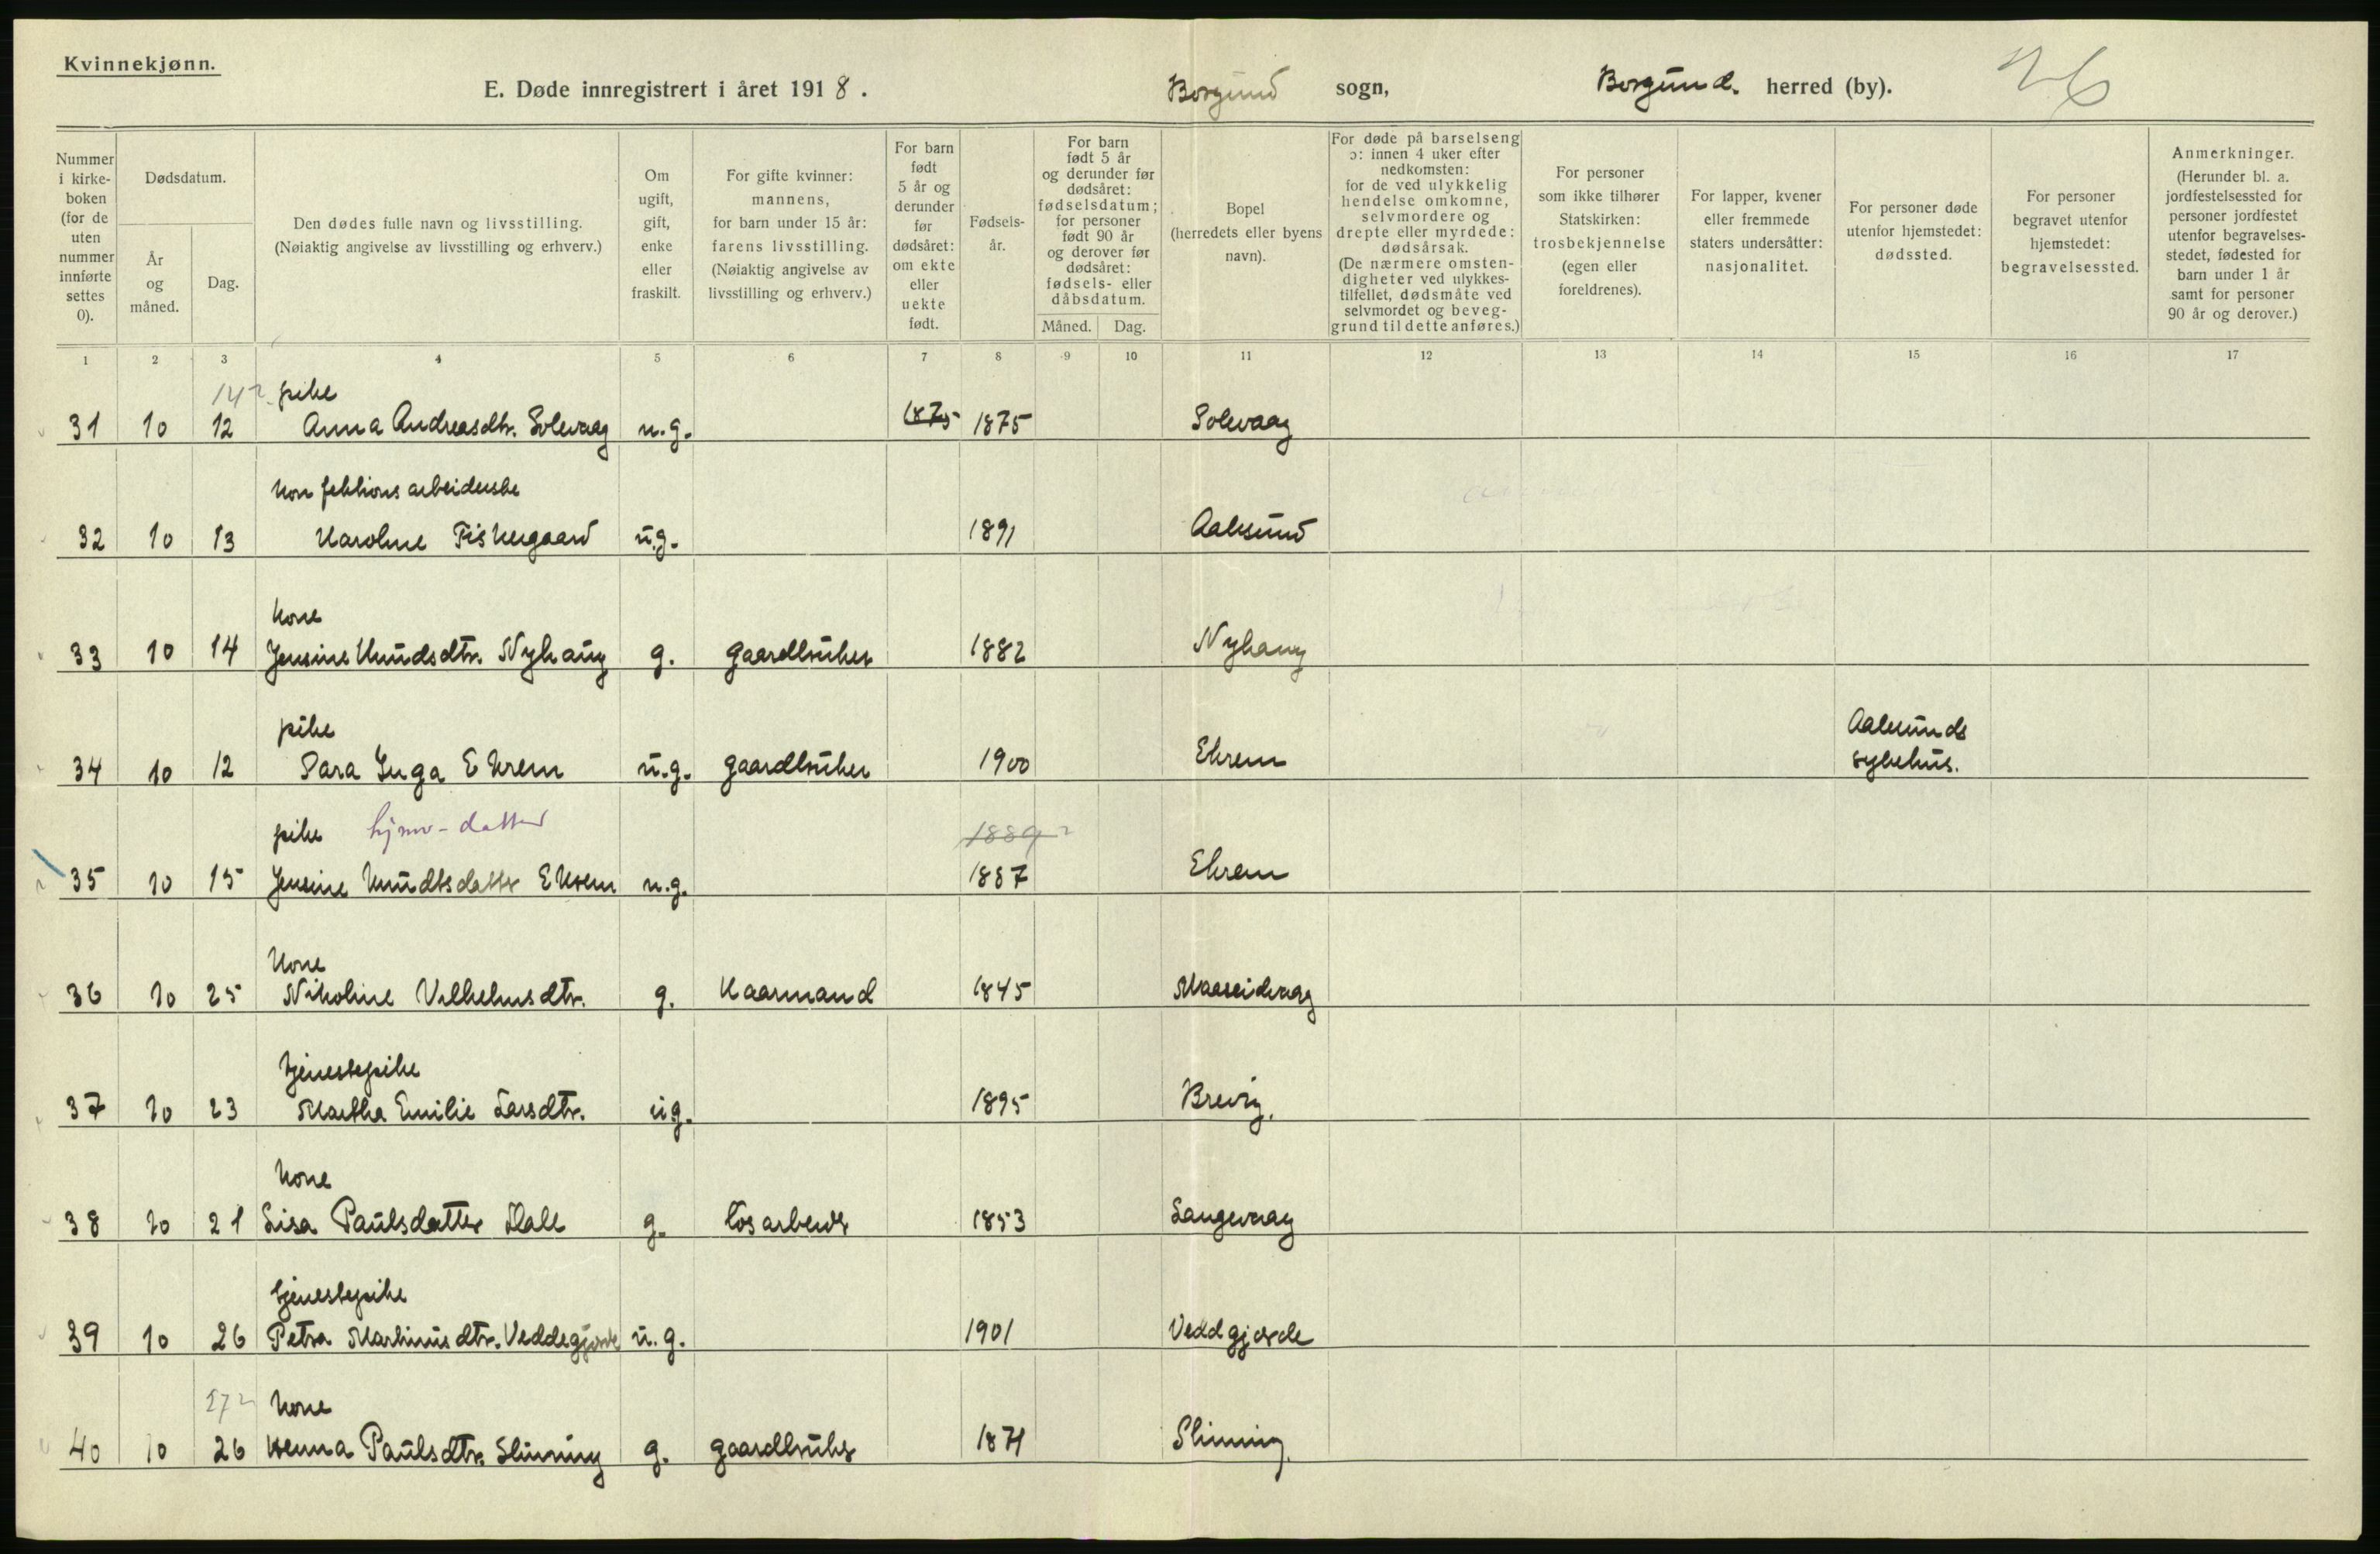 Kvinnekjønn.
E. Døde innregistrert i året 1918. Borgund sogn, Borgund. herred (by). 26
Nummer i kirke- boken (for de uten nummer innførte settes 0).
Dødsdatum.
År og måned.
Dag.
Den dødes fulle navn og livsstilling. (Nøiaktig angivelse av livsstilling og erhverv.)
Om ugift, gift, enke eller fraskilt.
For gifte kvinner: mannens, for barn under 15 år: farens livsstilling. (Nøiaktig angivelse av livsstilling og erhverv.)
For barn født 5 år og derunder før dødsåret: om ekte eller uekte født.
Fødsels- år.
For barn født 5 år og derunder før dødsåret: fødselsdatum; for personer født 90 år og derover før dødsåret: fødsels- eller dåbsdatum.
Måned. Dag.
Bopel (herredets eller byens navn).
For døde på barselseng ɔ: innen 4 uker efter nedkomsten: for de ved ulykkelig hendelse omkomne, selvmordere og drepte eller myrdede: dødsårsak. (De nærmere omsten- digheter ved ulykkes- tilfellet, dødsmåte ved selvmordet og beveg- grund til dette anføres.)
For personer som ikke tilhører Statskirken: trosbekjennelse (egen eller foreldrenes).
For lapper, kvener eller fremmede staters undersåtter: nasjonalitet.
For personer døde utenfor hjemstedet: dødssted.
For personer begravet utenfor hjemstedet: begravelsessted.
Anmerkninger. (Herunder bl. a. jordfestelsessted for personer jordfestet utenfor begravelses- stedet, fødested for barn under 1 år samt for personer 90 år og derover.)
1 2 3 4 5 6 7 8 9 10 11 12 13 14 15 16 17
14? pike
31 10 12 Anna Andreasdtr. Solevaag u.g. 1875 1875 Solevaag
Konfektionsarbeiderske
32 10 13 Karoline Fiskergaard u.g. 1891 Aalesund
Kone
33 10 14 Jensine Knudsdtr. Nyhaug g. gaardbruker 1882 Nyhaug
pike Aalesunds
34 10 12 Sara Inga Ekrem u.g. gaardbruker 1900 Ekrem sykehus.
pike hjmv-datter 1889?
35 10 15 Jensine Knudtsdatter Ekrem u.g. 1887 Ekrem
Kone
36 10 25 Nikoline Vilhelmsdtr. g. Kaarmand 1845 Maaseidvaag
tjenestepike
37 10 23 Martha Emilie Larsdtr. ug. 1895 Brevig.
Kone
38 10 21 Lisa Paulsdatter Hale g. løsarbeider 1853 Langevaag
tjenestepike
39 10 26 Petra Martinusdtr. Veddegjerde u.g. 1901 Veddgjerde
27? Kone
40 10 26 Paulsdtr. Slinning g. gaardbruker 1871 Slinning.